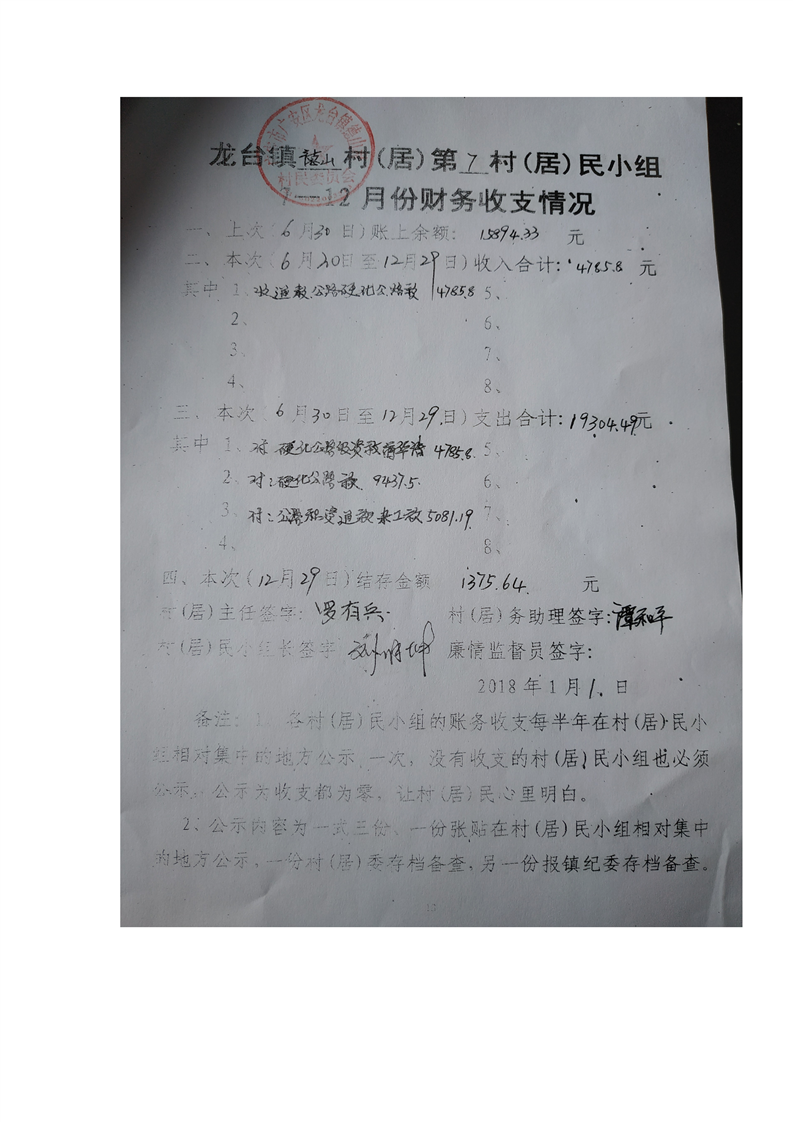 龙台镇 山村(居)第7村(居)民小组
7—12月份财务收支情况
村民委员会
一、上次(6月30日)账上余额: 15894.33 元
二、本次(6月30日至12月29日)收入合计: 4785.8 元
其中 1、收 公路硬化公路款 4785.8 5、
2、 6、
3、 7、
4、 8、
三、本次(6月30日至12月29日)支出合计: 19304.49元
其中 1、付 硬化公路 4785.8 5、
2、付:硬化公路款 9437.5 6、
3、付:公路 5081.19 7、
4、 8、
四、本次(12月29日)结存金额 1375.64 元
村(居)主任签字: 罗有兵 村(居)务助理签字:谭和平
村(居)民小组长签字 廉情监督员签字:
2018年1月1日
备注:1、各村(居)民小组的账务收支每半年在村(居)民小
组相对集中的地方公示一次,没有收支的村(居)民小组也必须
公示,公示为收支都为零,让村(居)民心里明白。
2、公示内容为一式三份、一份张贴在村(居)民小组相对集中
的地方公示、一份村(居)委存档备查,另一份报镇纪委存档备查。